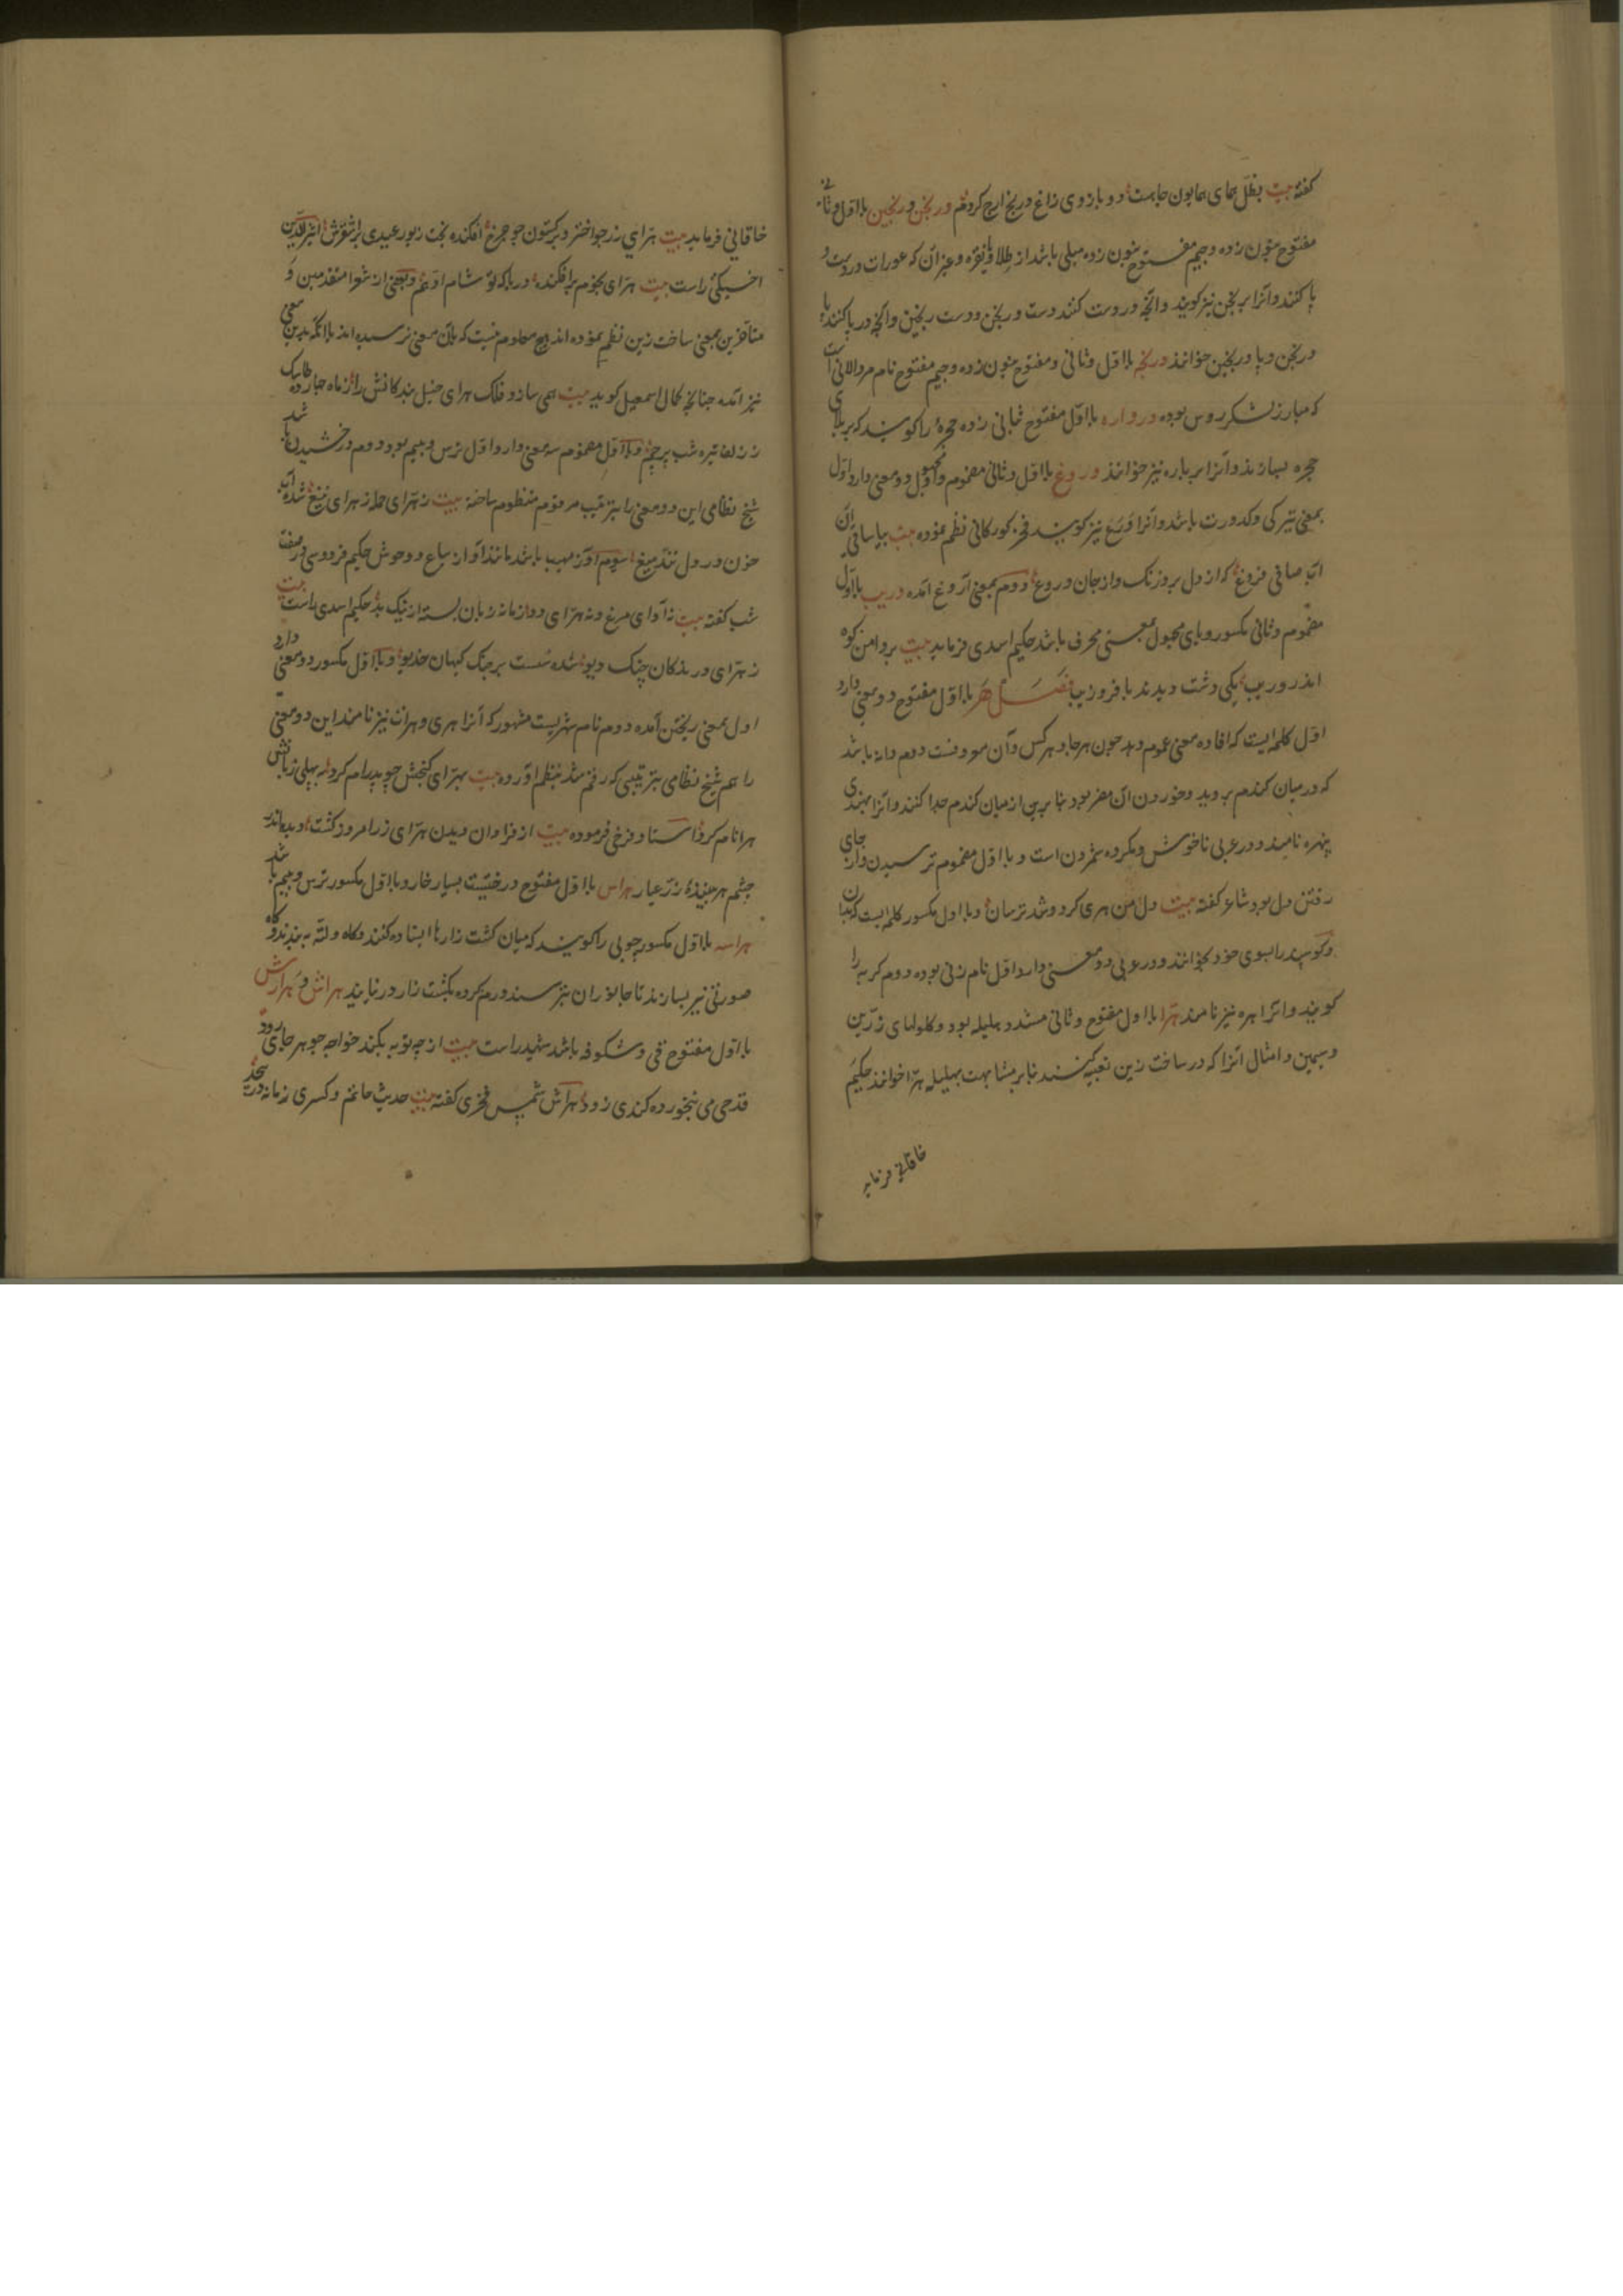 کفته بیت بفلّ همای همایون جاهت دو بازوی زاغ در یخ ارج کردم ورنجن ورنجین با اول و ثانی
مفتوح بنون زده وجیم مفتوح بنون زده میلی باشد از طلا و یا نقره وغیر آن که عورات در دست و
پا کنند وآنرا برنجن نیز کویند وآنچه در دست کنند دست ورنجن ودست رنجین وآنچه در پا کنند پا
ورنجن وپا ورنجین خوانند ورنجه با اول وثانی ومفتوح بنون زده وجیم مفتوح نام مردالانی است
که مبارز لشکر روس بوده وروارہ با اول مفتوح بثانی زده حجرهٔ را کویند که بر بالای
حجره بسازند وآنرا بربارہ نیز خوانند وروغ با اول وثانی مضموم وواو مجهول دو معنی دارد اول
بمعنی تیرکی وکدورت باشد وآنرا وَرَغ نیز کویند فخر کورکانی نظم نموده بیت بیا ساقی آن
آب صافی فروغ که از دل برد زنک واز جان وروغ دوم بمعنی آروغ آمده وریب با اول
مضموم وثانی مکسور ویای مجهول بمعنی محرف باشد حکیم اسدی فرماید بیت بر دامن کوه
اندر وریب یکی دشت دیدند با فر وزیب فصل هَر با اول مفتوح دو معنی دارد
اول کلمه ایست که افاده معنی عموم دهد چون هرجا وهرکس وآن معروفست دوم دانه باشد
که در میان کندم بروید وخوردن آن مضر بود بنا برین از میان کندم جدا کنند وآنرا بهندی
پنهره نامند ودر عربی ناخوش ومکروه شمردن است وبا اول مضموم ترسیدن واز جای
رفتن دل بود شاعر کفته بیت دل من هری کرد وشد ترسان وبا اول مکسور کلمه ایست که بدان
کوسپند را بسوی خود بخوانند ودر عربی دو معنی دارد اول نام زنی بوده دوم کربه را
کویند وآنرا هره نیز نامند هرّا با اول مفتوح وثانی مشدد هلیله بود وکلولهای زرّین
وسیمین وامثال آنرا که در ساخت زین تعبیه کنند بنابر مشابهت بهلیله هرّا خوانند حکیم
خاقانی فرماید
خاقانی فرماید بیت هرّای زر جو اختر وبرکستون جو چرخ افکنده بخت زیور عیدی بر اشقرش اثیرالدین
اخسیکتی راست بیت هرّای نجوم برافکنده دریا که تو شام ادهم وبعضی از شعرا متقدمین و
متأخرین بمعنی ساخت زین نظم نموده اند هیچ معلوم نیست که بآن معنی نرسیده اند یا آنکه بدین معنی
نیز آمده جنانچه کمال اسمعیل کوید بیت همی سازد فلک هرای خنبل بندکانش را
زر زلف تیره شب پرچم وبا اول مضموم سه معنی دارد اول ترس وبیم بود دوم درخشیدن باشد
شیخ نظامی این دو معنی را بترتیب مرقوم منظوم ساخته بیت زهرّای حمله زهرای تیغ شده آب
خون در دل تند میغ سیوم آواز مهیب باشد مانند آواز سباع ووحوش حکیم فردوسی در صفت
شب کفته بیت نه آوای مرغ ونه هرّای دد زمانه زبان بسته از نیک وبد حکیم اسدی راست بیت
زهرّای درندکان چنک دیو شده سست بر چنک کیهان خدیو وبا اول مکسور دو معنی دارد
اول بمعنی ریختن آمده دوم نام شهریست مشهور که آنرا هری وهرات نیز نامند این دو معنی
را هم شیخ نظامی بترتیبی که رقم شد بنظم آورده بیت بهرّای کنجش چو پدرام کرد بپهلوی زبانش
هرا نام کرد استاد فرخی فرموده بیت از فراوان دیدن هرّای زر امروز کشت دیده اندر
چشم هر بیننده زر عیار هراس با اول مفتوح درختیست بسیار خار وبا اول مکسور ترس وبیم باشد
هراسه با اول مکسور چوبی را کویند که میان کشت زارها ایستاده کنند وکاه ولته به بندند وکاه
صورتی نیز بسازند تا جانوران بترسند ورم کرده بکشت زار در نیایند هراش وهرارش
با اول مفتوح قی وشکوفه باشد شهید راست بیت از چه توبه نکند خواجه جو هر جای رود
قدحی می بخورده کندی زود هراش شمس فخری کفته بیت حدیث حاتم وکسری زمانه